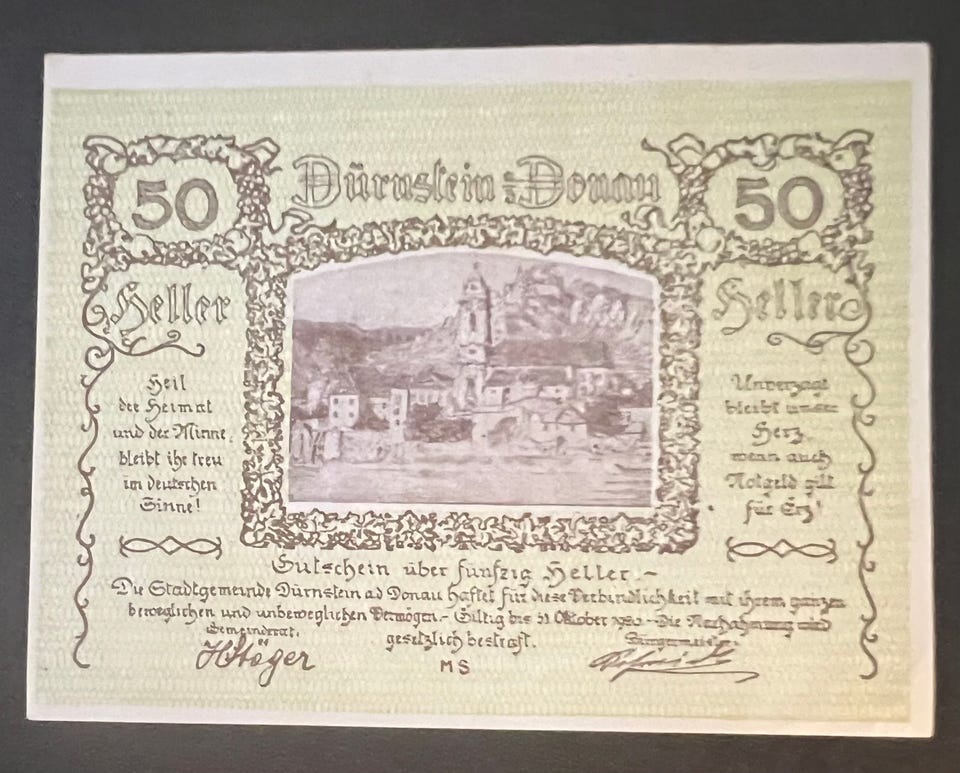 50
Dürnstein a/d Donau
50
Heller
Heller
Heil
der Heimat
und der Minne,
bleibt ihr treu
im deutschen
Sinne!
Unverzagt
bleibt unser
Herz,
wenn auch
Notgeld gilt
für Erz!
Gutschein über fünfzig Heller.-
Die Stadtgemeinde Dürnstein ad Donau haftet für diese Verbindlichkeit mit ihrem ganzen
beweglichen und unbeweglichen Vermögen.- Giltig bis 31 Oktober 1920.- Die Nachahmung wird
gesetzlich bestraft.
Gemeinderat:
Bürgermeister
HStöger
MS